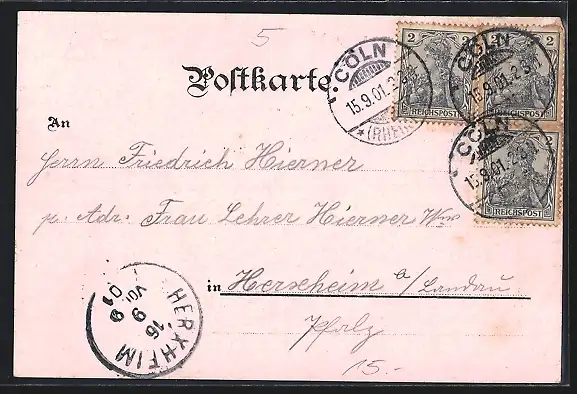 5
Postkarte.
An
Herrn Friedrich Hierner
p. Adr. Frau Lehrer Hierner Wwe
in Herxheim b/Landau
Pfalz
15.-
CÖLN
15.9.01.2-3
*(RHEIN)
2
REICHSPOST
CÖLN
15.9.01.2-3
2
REICHSPOST
CÖLN
15.9.01.2-3
2
REICHSPOST
HERXHEIM
16
9
VOR
9
01